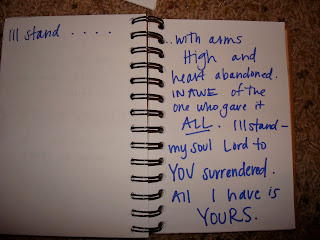 Ill stand ....
..with arms
High and
heart abandoned.
IN AWE of the
one who gave it
ALL. Ill stand -
my soul Lord to
YOU surrendered.
All I have is
YOURS.